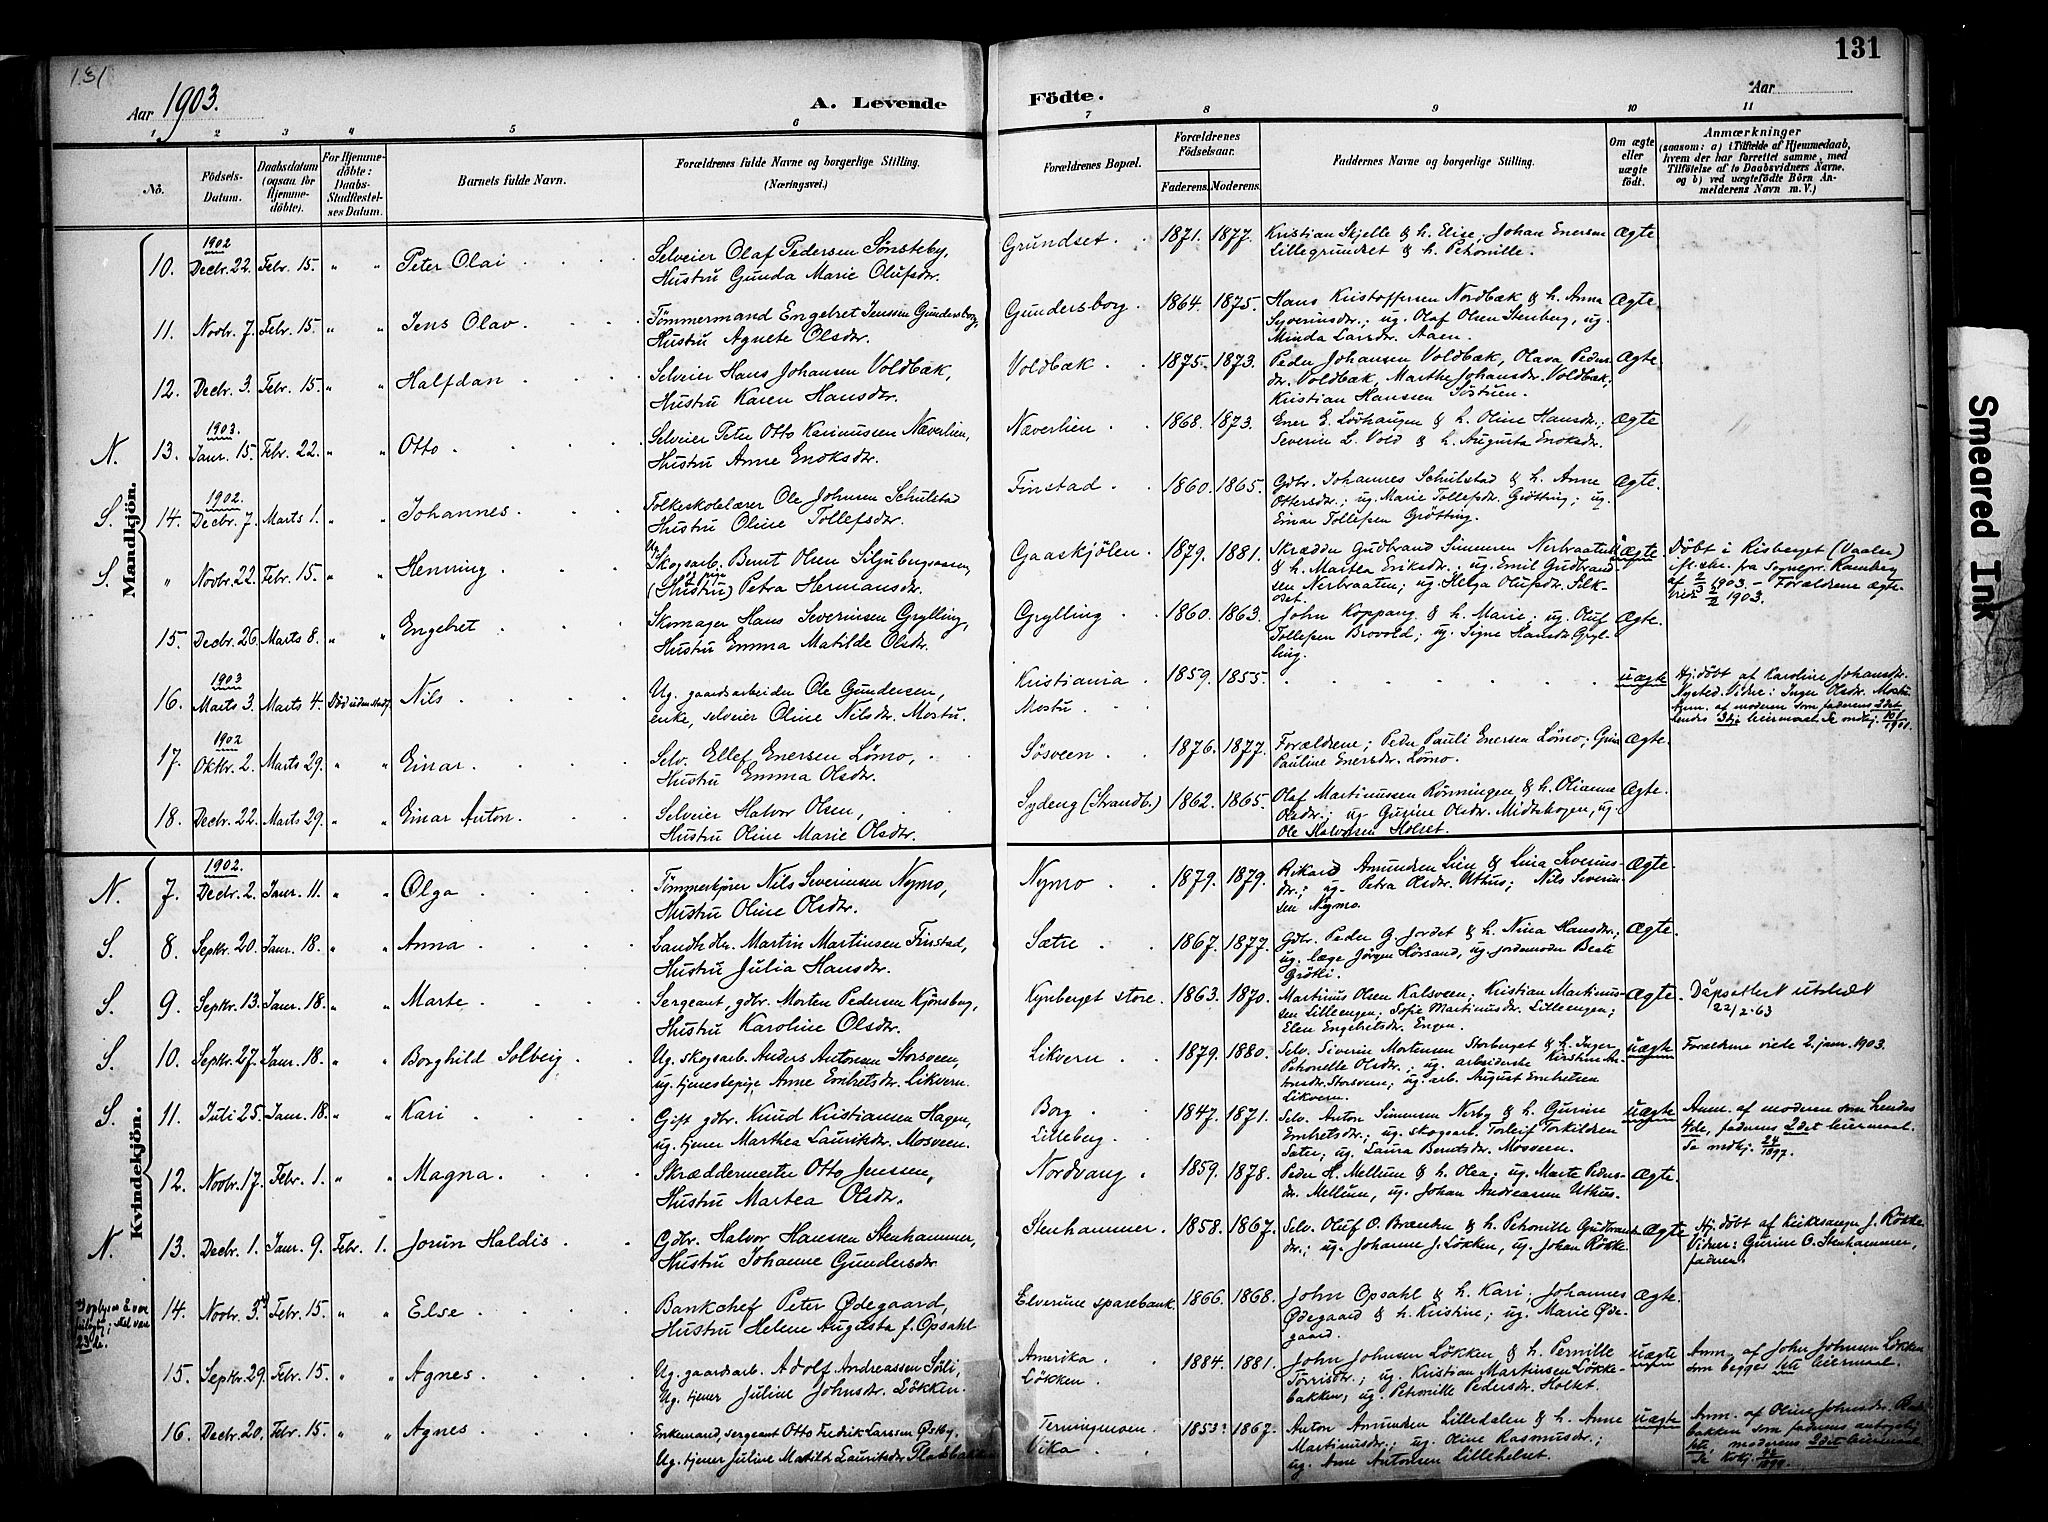 131
131
Aar 1903.
A. Levende
Födte.
Aar
1 2 3 4 5 6 7 8 9 10 11
No.
Födsels-Datum.
Daabsdatum (ogsaa for Hjemme-döbte).
For Hjemme-döbte: Daabs-Stadfæstel-ses Datum.
Barnets fulde Navn.
Forældrenes fulde Navne og borgerlige Stilling. (Næringsvei.)
Forældrenes Bopæl.
Forældrenes Födselsaar.
Faderens. Moderens.
Faddernes Navne og borgerlige Stilling.
Om ægte eller uægte födt.
Anmærkninger
(saasom: a) i Tilfælde af Hjemmedaab, hvem der har forrettet samme, med Tilföielse af to Daabsvidners Navne, og b) ved uægtefödte Börn An-melderens Navn m. V.)
Mandkjön.
1902
10. Decbr. 22. Febr. 15. " " Peter Olai
Selveier Olaf Pedersen Sønsteby,
Hustru Gunda Marie Olufsdr.
Grundset. 1871. 1877.
Kristian Skjelle & h. Elise, Johan Enersen
Lillegrundset & h. Pethonille.
Ægte
11. Novbr. 7. Febr. 15. " " Jens Olav
Tømmermand Engebret Jenssen Gundersborg,
Hustru Agnete Olsdr.
Gundersborg. 1864. 1875.
Hans Kristoffersen Nordbæk & h. Anna
Syverinsdr.; ug. Olaf Olsen Stenberg, ug.
Minda Larsdr. Aaen.
Ægte.
12. Decbr. 3. Febr. 15. " " Halfdan
Selveier Hans Johansen Voldbæk,
Hustru Karen Hansdr.
Voldbæk 1875. 1873.
Peder Johansen Voldbæk, Olava Peders-
dr. Voldbæk, Marthe Johansdr. Voldbæk,
Kristian Hanssen
Ægte.
1903.
N. 13. Janr. 15. Febr. 22. " " Otto.
Selveier Peter Otto Karinussen Næverlien,
Hustru Anne Enoksdr.
Næverlien 1868. 1873.
Ener E. Løvhaugen & h. Oline Hansdr.;
Severin L. Vold & h. Augusta Enoksdr.
Ægte
1902.
S. 14. Decbr. 7. Marts 1. " " Johannes
Folkeskolelærer Ole Johnsen Schulstad
Hustru Oline Tollefsdr.
Finstad 1860. 1865.
Gdbr. Johannes Schulstad & h. Anne
Ottersdr.; ug. Marie Tollefsdr. Grøtting; ug.
Einar Tollefsen Grøtting.
Ægte.
S. " Novbr. 22. Febr. 15. " " Henning
Ug. Skogsarb. Bernt Olsen Siljubergsaasen,
(Hustru) Petra Hermansdr.
Gaaskjølen. 1879. 1881.
Skrædder Gudbrand Simensen Nerbraaten
& h. Martea Eriksdr.; ug. Emil Gudbrand-
sen Nerbraaten; ug. Helga Olufsdr. Silk-
oset.
uægte
Døbt i Risberget (Vaaler)
ifl. skr. fra Sognepr. Ramberg
af 2/3 1903. - Forældrene ægte-
1903.
15. Decbr. 26. Marts 8. " " Engebret
Skomager Hans Severinsen Grylling,
Hustru Emma Matilde Olsdr.
Grylling 1860. 1863.
John Koppang & h. Marie; ug. Oluf
Tollefsen Brovold; ug. Signe Hansdr. Gryl-
ling.
Ægte.
1903
16. Marts 3. Marts 4. Død uden stadf. Nils
Ug. gaardsarbeider Ole Gundersen,
enke, selveier Oline Nilsdr. Mostu.
Kristiania 1859. 1855.
Mostu
uægte
Hj.døbt af Karoline Johansdr.
Nysted. Vidne: Inger Olsdr. Mostu
Anm. af moderen som faderens 2det
hendes 3die leiermaal. Se
1902
17. Oktbr. 2. Marts 29. " " Einar.
Selv. Ellef Enersen Lømo,
Hustru Emma Olsdr.
Søsveen 1876. 1877.
Forældrene; Peder Pauli Enersen Lømo; Gina
Pauline Enersdr. Lømo.
Ægte.
18. Decbr. 22. Marts 29. " " Einar Anton.
Selveier Halvor Olsen,
Hustru Oline Marie Olsdr.
Sydeng (Strandb.) 1862. 1865.
Olaf Martinussen Rønningen & h. Olianne
Olsdr.; ug. Gurine Olsdr. Midtskogen, ug.
Ole Halvorsen Holset.
Ægte.
Kvindekjön.
1902.
N. 7. Decbr. 2. Janr. 11. " " Olga
Tømmerkjører Nils Severinsen Nymo,
Hustru Oline Olsdr.
Nymo 1879. 1879.
Rikard Amundsen Lien & Lina Severins-
dr.; ug. Petra Olsdr. Uthus; Nils Severin-
sen Nymo.
Ægte.
S. 8. Septbr. 20. Janr. 18. " " Anna
Landh.hr. Martin Martinsen Finstad,
Hustru Julia Hansdr.
Sætre 1867. 1877.
Gdbr. Peder G. Jordet & h. Nina Hansdr.;
ug. læge Jørgen Hørsand, ug. jordemoder Beate
Grøtli.
Ægte.
S. 9. Septbr. 13. Janr. 18. " " Marte
Sergeant, gdbr. Morten Pedersen Kjønsberg,
Hustru Karoline Olsdr.
Kynberget store. 1863. 1870.
Martinus Olsen Kalsveen; Kristian Martinus-
sen Lilleengen; Sofie Martinusdr. Lilleengen;
Elen Engebretsdr. Engen.
Ægte.
Dåpsattest utstedt
22/2-63
S. 10. Septbr. 27. Janr. 18. " " Borghild Solbeig
Ug. skogsarb. Anders Antonsen Storsveen,
ug. tjenestepige Anne Embretsdr. Likvern.
Likvern 1879. 1880.
Selv. Siverin Mortensen Storberget & h. Inger
Pethonelle Olsdr.; ug. arbeiderske Kirstine An-
tonsdr. Storsveen; ug. arb. August Embretsen
Likvern.
uægte
Forældrene viede 2. janr. 1903.
S. 11. Juli 25. Janr. 18. " " Kari
Gift gdbr. Knud Kristiansen Hagen,
ug. tjener Marthea Lauritsdr. Mosveen.
Borg 1847. 1871.
Lilleberg.
Selv. Anton Simensen Nerby & h. Gurine
Embretsdr.; ug. skogsarb. Torleif Torkildsen
Sæter; ug. Laura Berntsdr. Mosveen.
uægte
Anm. af moderen som hendes
4de, faderens 2det leiermaal.
Se mdbj. 24/1897.
12. Novbr. 17. Febr. 1. " " Magna.
Skræddermester Otto Jenssen,
Hustru Martea Olsdr.
Nordvang 1859. 1878.
Peder H. Mellum & h. Olea; ug. Marte Peders-
dr. Mellum, ug. Johan Andreassen Uthus.
Ægte.
N. 13. Decbr. 1. Janr. 9. Febr. 1. Jorun Haldis
Gdbr. Halvor Hanssen Stenhammer,
Hustru Johanne Gundersdr.
Stenhammer. 1858. 1867.
Selv. Oluf O. Brænden & h. Pethonille Gudbrands-
dr.; ug. Johanne J. Løkken, ug. Johan Røkke.
Ægte
Hj.døbt af kirkesanger J. Røkke.
Vidner: Gurine O. Stenhammer,
faderen.
14. Novbr. 3. Febr. 15. " " Else
23de.
Bankchef Peter Ødegaard,
Hustru Helene Augusta f. Opsahl
Elverume sparebank. 1866. 1868.
John Opsahl & h. Kari; Johannes
Ødegaard & h. Kristine; ug. Marie Øde-
gaard.
Ægte.
15. Septbr. 29. Febr. 15. " " Agnes.
Ug. gaardsarb. Adolf Andreassen Sørli,
Ug. tjener Juline Johnsdr. Løkken.
Amerika 1884. 1881.
Løkken.
John Johnsen Løkken & h. Pernille
Torrisdr.; ug. Kristian Martinsen Løkke-
bakken; ug. Petronille Pedersdr. Holtet.
uægte
Anm. af John Johnsen Løkken
som begges 1ste leiermaal.
16. Decbr. 20. Febr. 15. " " Agnes.
Enkemand, sergeant Otto Fredrik Larssen Østby,
Ug. tjener Juline Matilde Lauritsdr. Pladsbakken
Terningmoen 1853. 1867.
Vika
Anton Amundsen Lilledalen & h. Anne
Martinusdr.; ug. Oline Rasmusdr.;
ug. Arne Antonsen Lilleholset.
uægte
Anm. af Oline Johnsdr.
bakken som faderens
1ste, moderens 2det leiermaal.
Smeared Ink